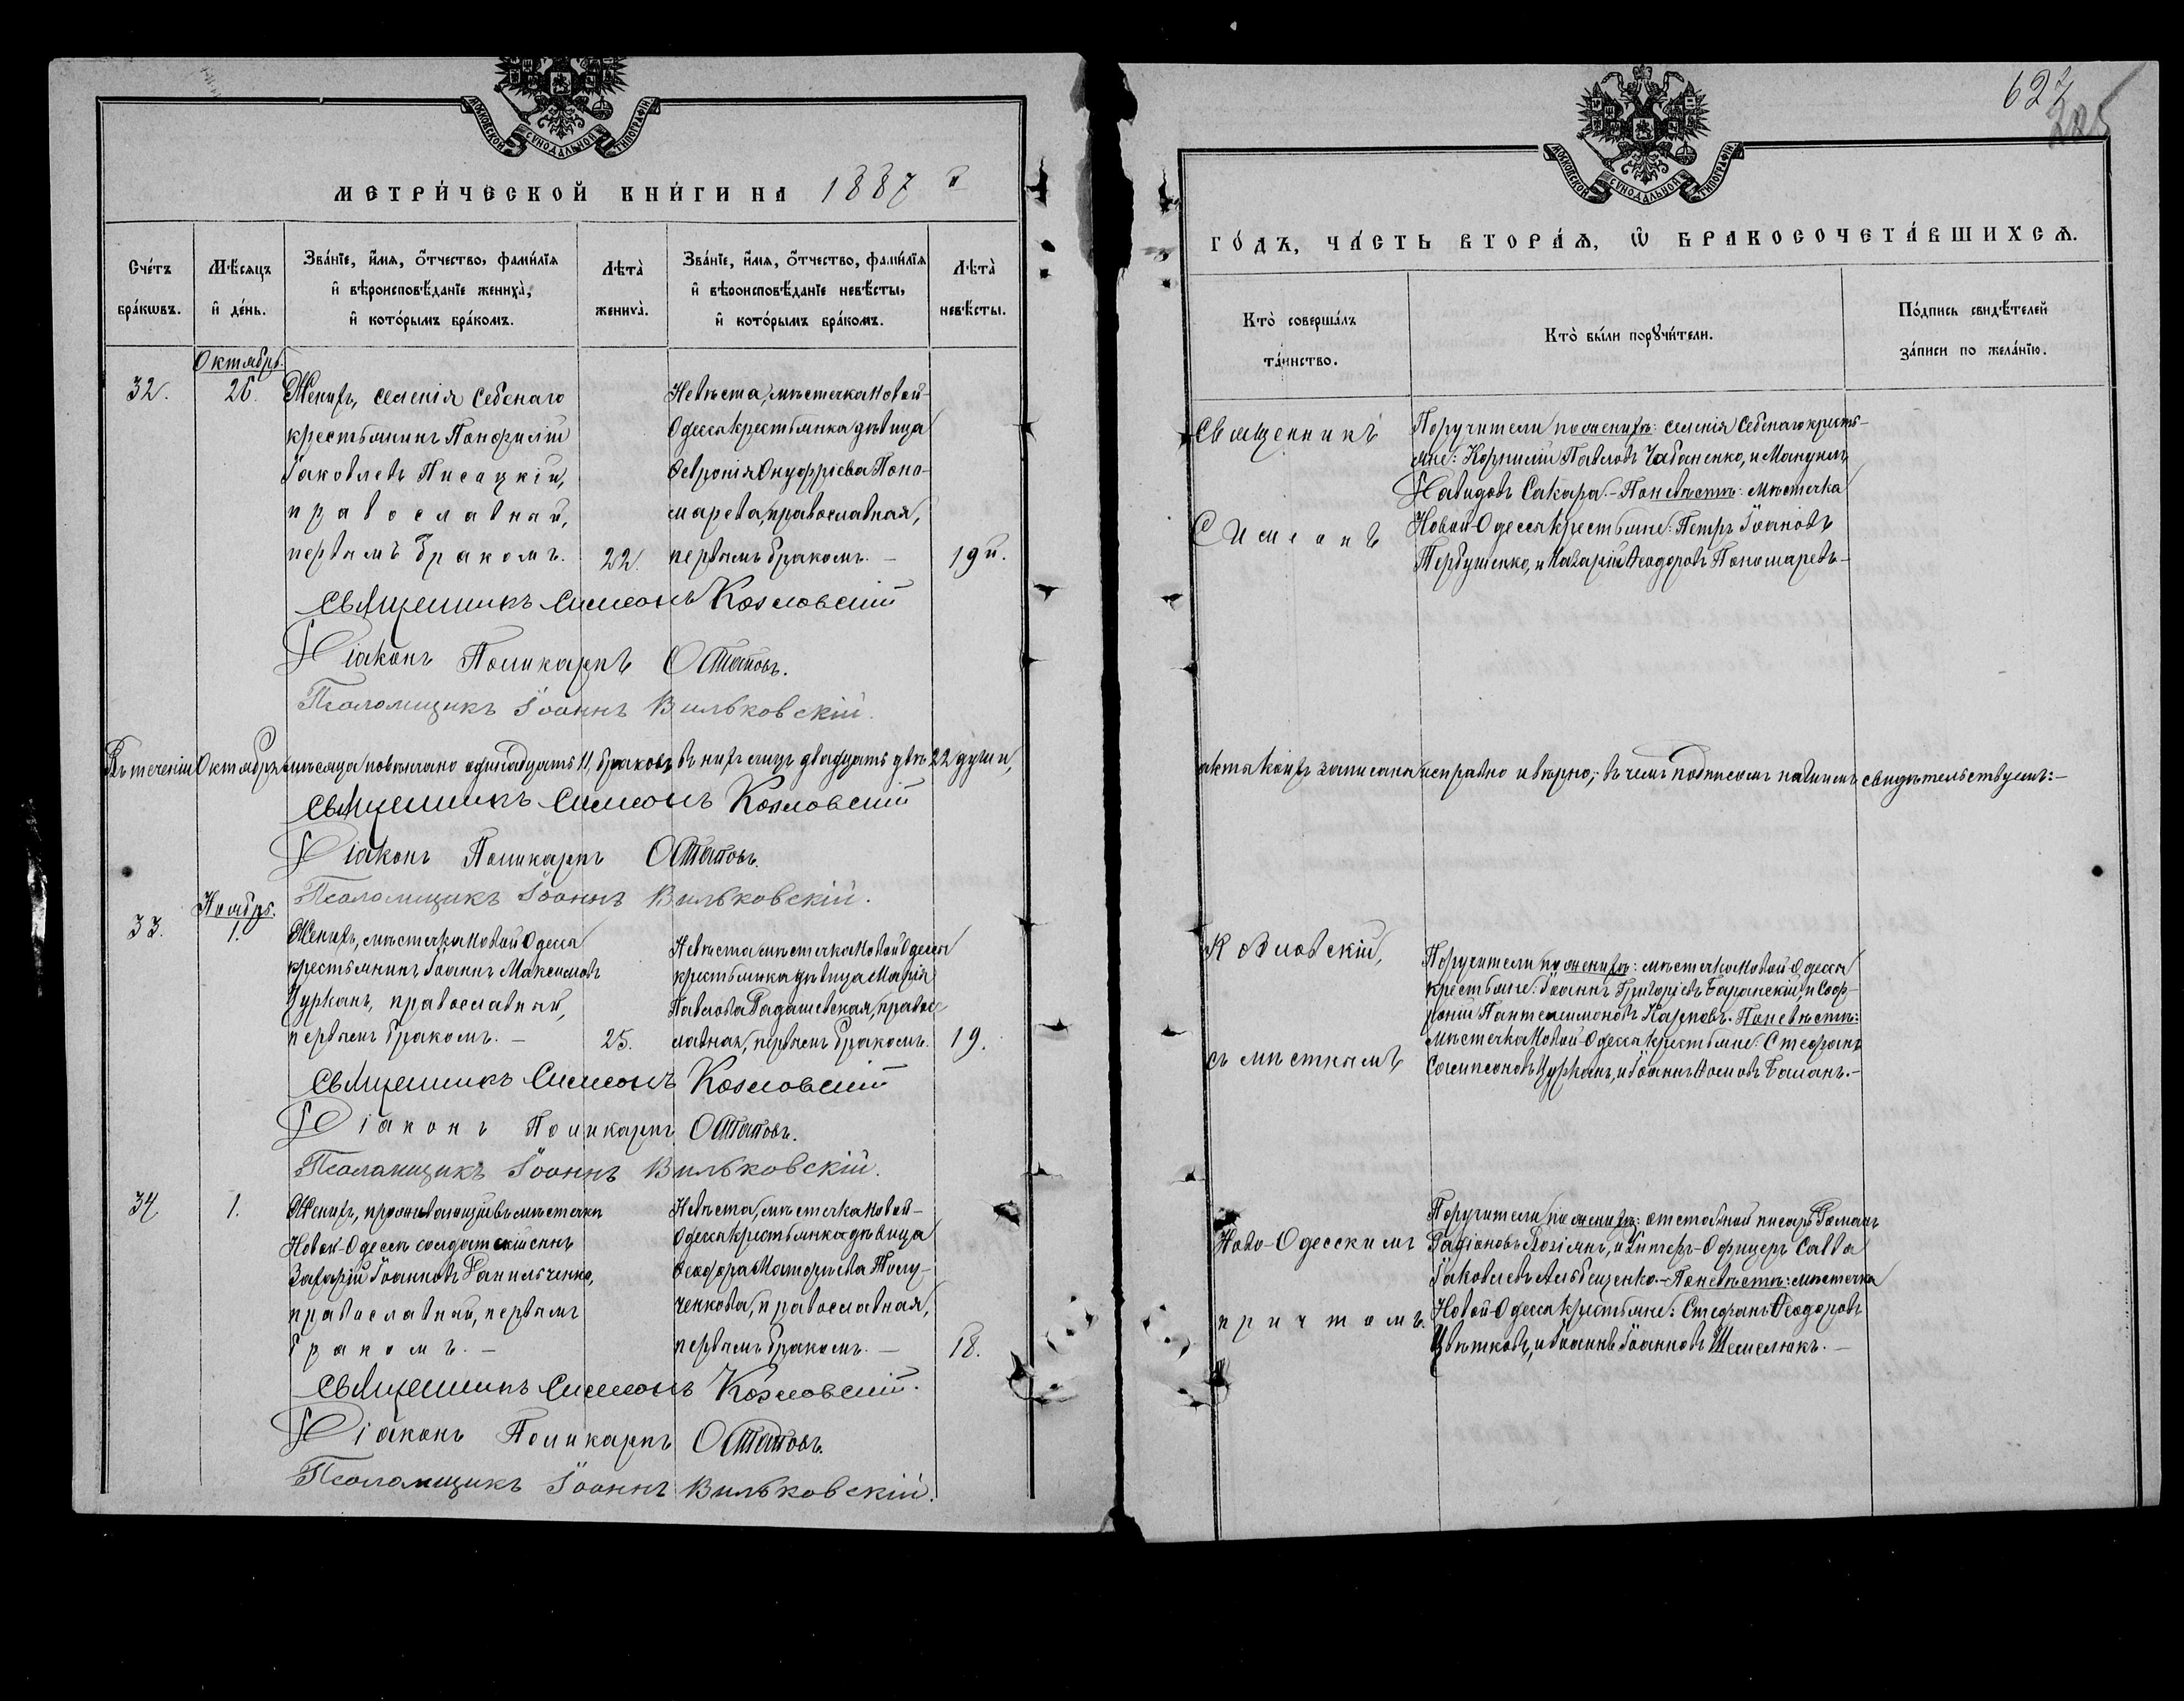 МОСКОВСКОЙ СѴНОДАЛЬНОЙ ТИПОГРАФІИ
МЕТРИ́ЧЕСКОЙ КНИ́ГИ НА 1887 й
Сче́тъ бра́кωвъ.
Мѣ́сяцъ и҆ де́нь.
Зва́нїе, и҆́мя, ѻ҆́тчество, фами́лїя
и҆ вѣроисповѣ́данїе жениха̀,
и҆ кото́рымъ бра́комъ.
Лѣта̀ жениха̀.
Зва́нїе, и҆́мя, ѻ҆́тчество, фами́лїя
и҆ вѣроисповѣ́данїе невѣ́сты,
и҆ кото́рымъ бра́комъ.
Лѣта̀ невѣ́сты.
Октябрь.
32.
26.
Женихъ, селенія Себенаго
крестьянинъ Панфилій
Іаковлевъ Писацкій,
православный,
первымъ бракомъ.
22.
Невѣста, мѣстечка Новой-
Одессы крестьянка дѣвица
Февронія Онуфріева Поно-
марева, православная,
первымъ бракомъ. —
19й.
Священникъ Симеонъ Козловскій
Діаконъ Поликарпъ Остаповъ.
Псаломщикъ Іоаннъ Вильковскій.
Въ теченіи Октября мѣсяца повѣнчано одинадцать 11, браковъ въ нихъ лицъ двадцать двѣ 22 души,
Священникъ Симеонъ Козловскій
Діаконъ Поликарпъ Остаповъ.
Псаломщикъ Іоаннъ Вильковскій.
Ноябрь.
33.
1.
Женихъ, мѣстечка Новой Одессы
крестьянинъ Іоаннъ Максимовъ
Цурканъ, православный,
первымъ бракомъ. —
25.
Невѣста мѣстечка Новой Одессы
крестьянка дѣвица Марія
Павлова Радашевская, правос-
лавная, первымъ бракомъ.
19.
Священникъ Симеонъ Козловскій
Діаконъ Поликарпъ Остаповъ.
Псаломщикъ Іоаннъ Вильковскій.
34
1.
Женихъ, проживающій въ мѣстечкѣ
Новой-Одессѣ солдатскій сынъ
Захарій Іоанновъ Данильченко,
православный, первымъ
бракомъ. —
Невѣста, мѣстечка Новой-
Одессы крестьянка дѣвица
Феодора Матфѣева Толу-
ченкова, православная,
первымъ бракомъ. —
18.
Священникъ Симеонъ Козловскій.
Діаконъ Поликарпъ Остаповъ.
Псаломщикъ Іоаннъ Вильковскій.
627
МОСКОВСКОЙ СѴНОДАЛЬНОЙ ТИПОГРАФІИ
ГО́ДЪ, ЧА́СТЬ ВТОРА́Ѧ, Ѡ҆ БРАКОСОЧЕТА́ВШИХСѦ.
Кто̀ соверша́лъ
та́инство.
Кто̀ бы́ли порꙋчи́тели.
По́дпись свидѣ́телей
за́писи по жела́нїю.
Священникъ
Симеонъ
Поручители по женихѣ: селенія Себенаго кресть-
яне: Корнилій Павловъ Чабаненко, и Мануилъ
Давидовъ Сакара. — По невѣстѣ: мѣстечка
Новой-Одессы крестьяне: Петръ Іоановъ
Тербушенко, и Назарій Феодоровъ Пономаревъ —
акта коихъ записана исправно и вѣрно; въ чемъ подписомъ нашимъ свидѣтельствуемъ: —
Козловскій,
съ мѣстнымъ
Поручители по женихѣ: мѣстечка Новой-Одессы
крестьяне: Іоаннъ Григоріевъ Баранскій, и Соф-
роній Пантелимоновъ Карповъ. По невѣстѣ:
мѣстечка Новой-Одессы крестьяне: Стефанъ
Сампсоновъ Цурканъ, и Іоаннъ Фомовъ Баланъ. —
Ново-Одесскимъ
причтомъ.
Поручители по женихѣ: отставной писарь Романъ
Радіоновъ Козіянъ, и Унтеръ-Офицеръ Савва
Іаковлевъ Альбещенко. — По невѣстѣ: мѣстечка
Новой Одессы крестьяне: Стефанъ Феодоровъ
Цвѣтковъ, и Іоаннъ Іоанновъ Шемелюкъ. —